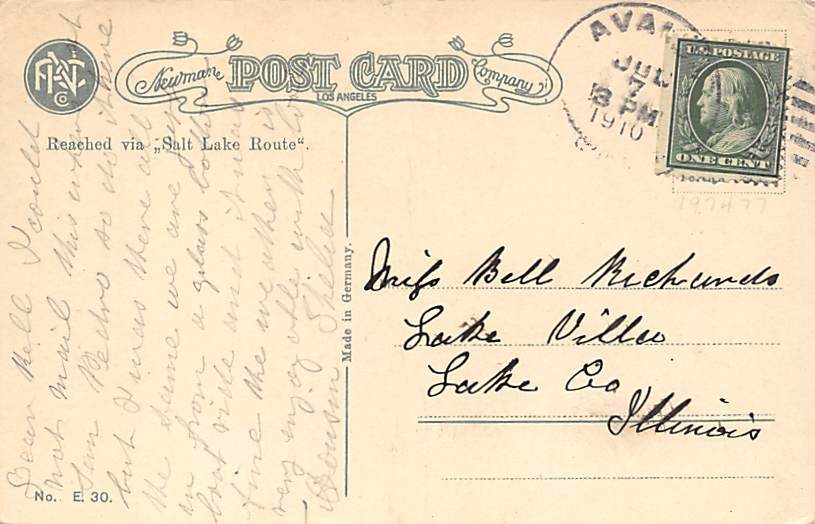 Newman POST CARD Company
LOS ANGELES
Reached via „Salt Lake Route“.
AVAL
JUL
7
8 PM
1910
U.S. POSTAGE
ONE CENT
197477
Miss Bell Richards
Lake Villa
Lake Co
Illinois
Made in Germany.
No. E. 30.
Dear Bell I could
not mail this when at
San Pedro so do it here
but I was there all
the same we are just
in from a glass bottom
boat ride and it was
fine the weather is
very enjoyable with
Cousin